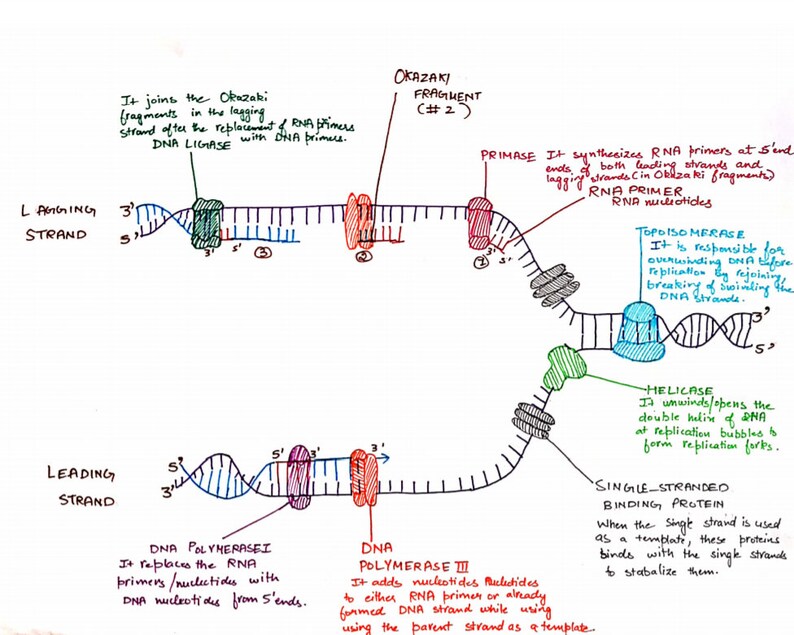 OKAZAKI
FRAGMENT
(#2)
It joins the Okazaki
fragments in the lagging
strand after the replacement of RNA primers
with DNA primers.
DNA LIGASE
PRIMASE It synthesizes RNA primers at 5' end
ends of both leading strands and
lagging strands (in Okazaki fragments)
RNA PRIMER
RNA nucleotides
LAGGING
STRAND
3'
5'
3' 5' ③
②
① 3' 5'
TOPOISOMERASE
It is responsible for
overwinding DNA before
replication by rejoining,
breaking of swiveling the
DNA strands.
3'
5'
HELICASE
It unwinds/opens the
double helix of DNA
at replication bubbles to
form replication forks.
LEADING
STRAND
5'
3'
5' 3'
3'
SINGLE-STRANDED
BINDING PROTEIN
When the single strand is used
as a template, these proteins
binds with the single strands
to stabalize them.
DNA POLYMERASE I
It replaces the RNA
primers/nucleotides with
DNA nucleotides from 5' ends.
DNA
POLYMERASE III
It adds nucleotides Nucleotides
to either RNA primer or already
formed DNA strand while using
using the parent strand as a template.